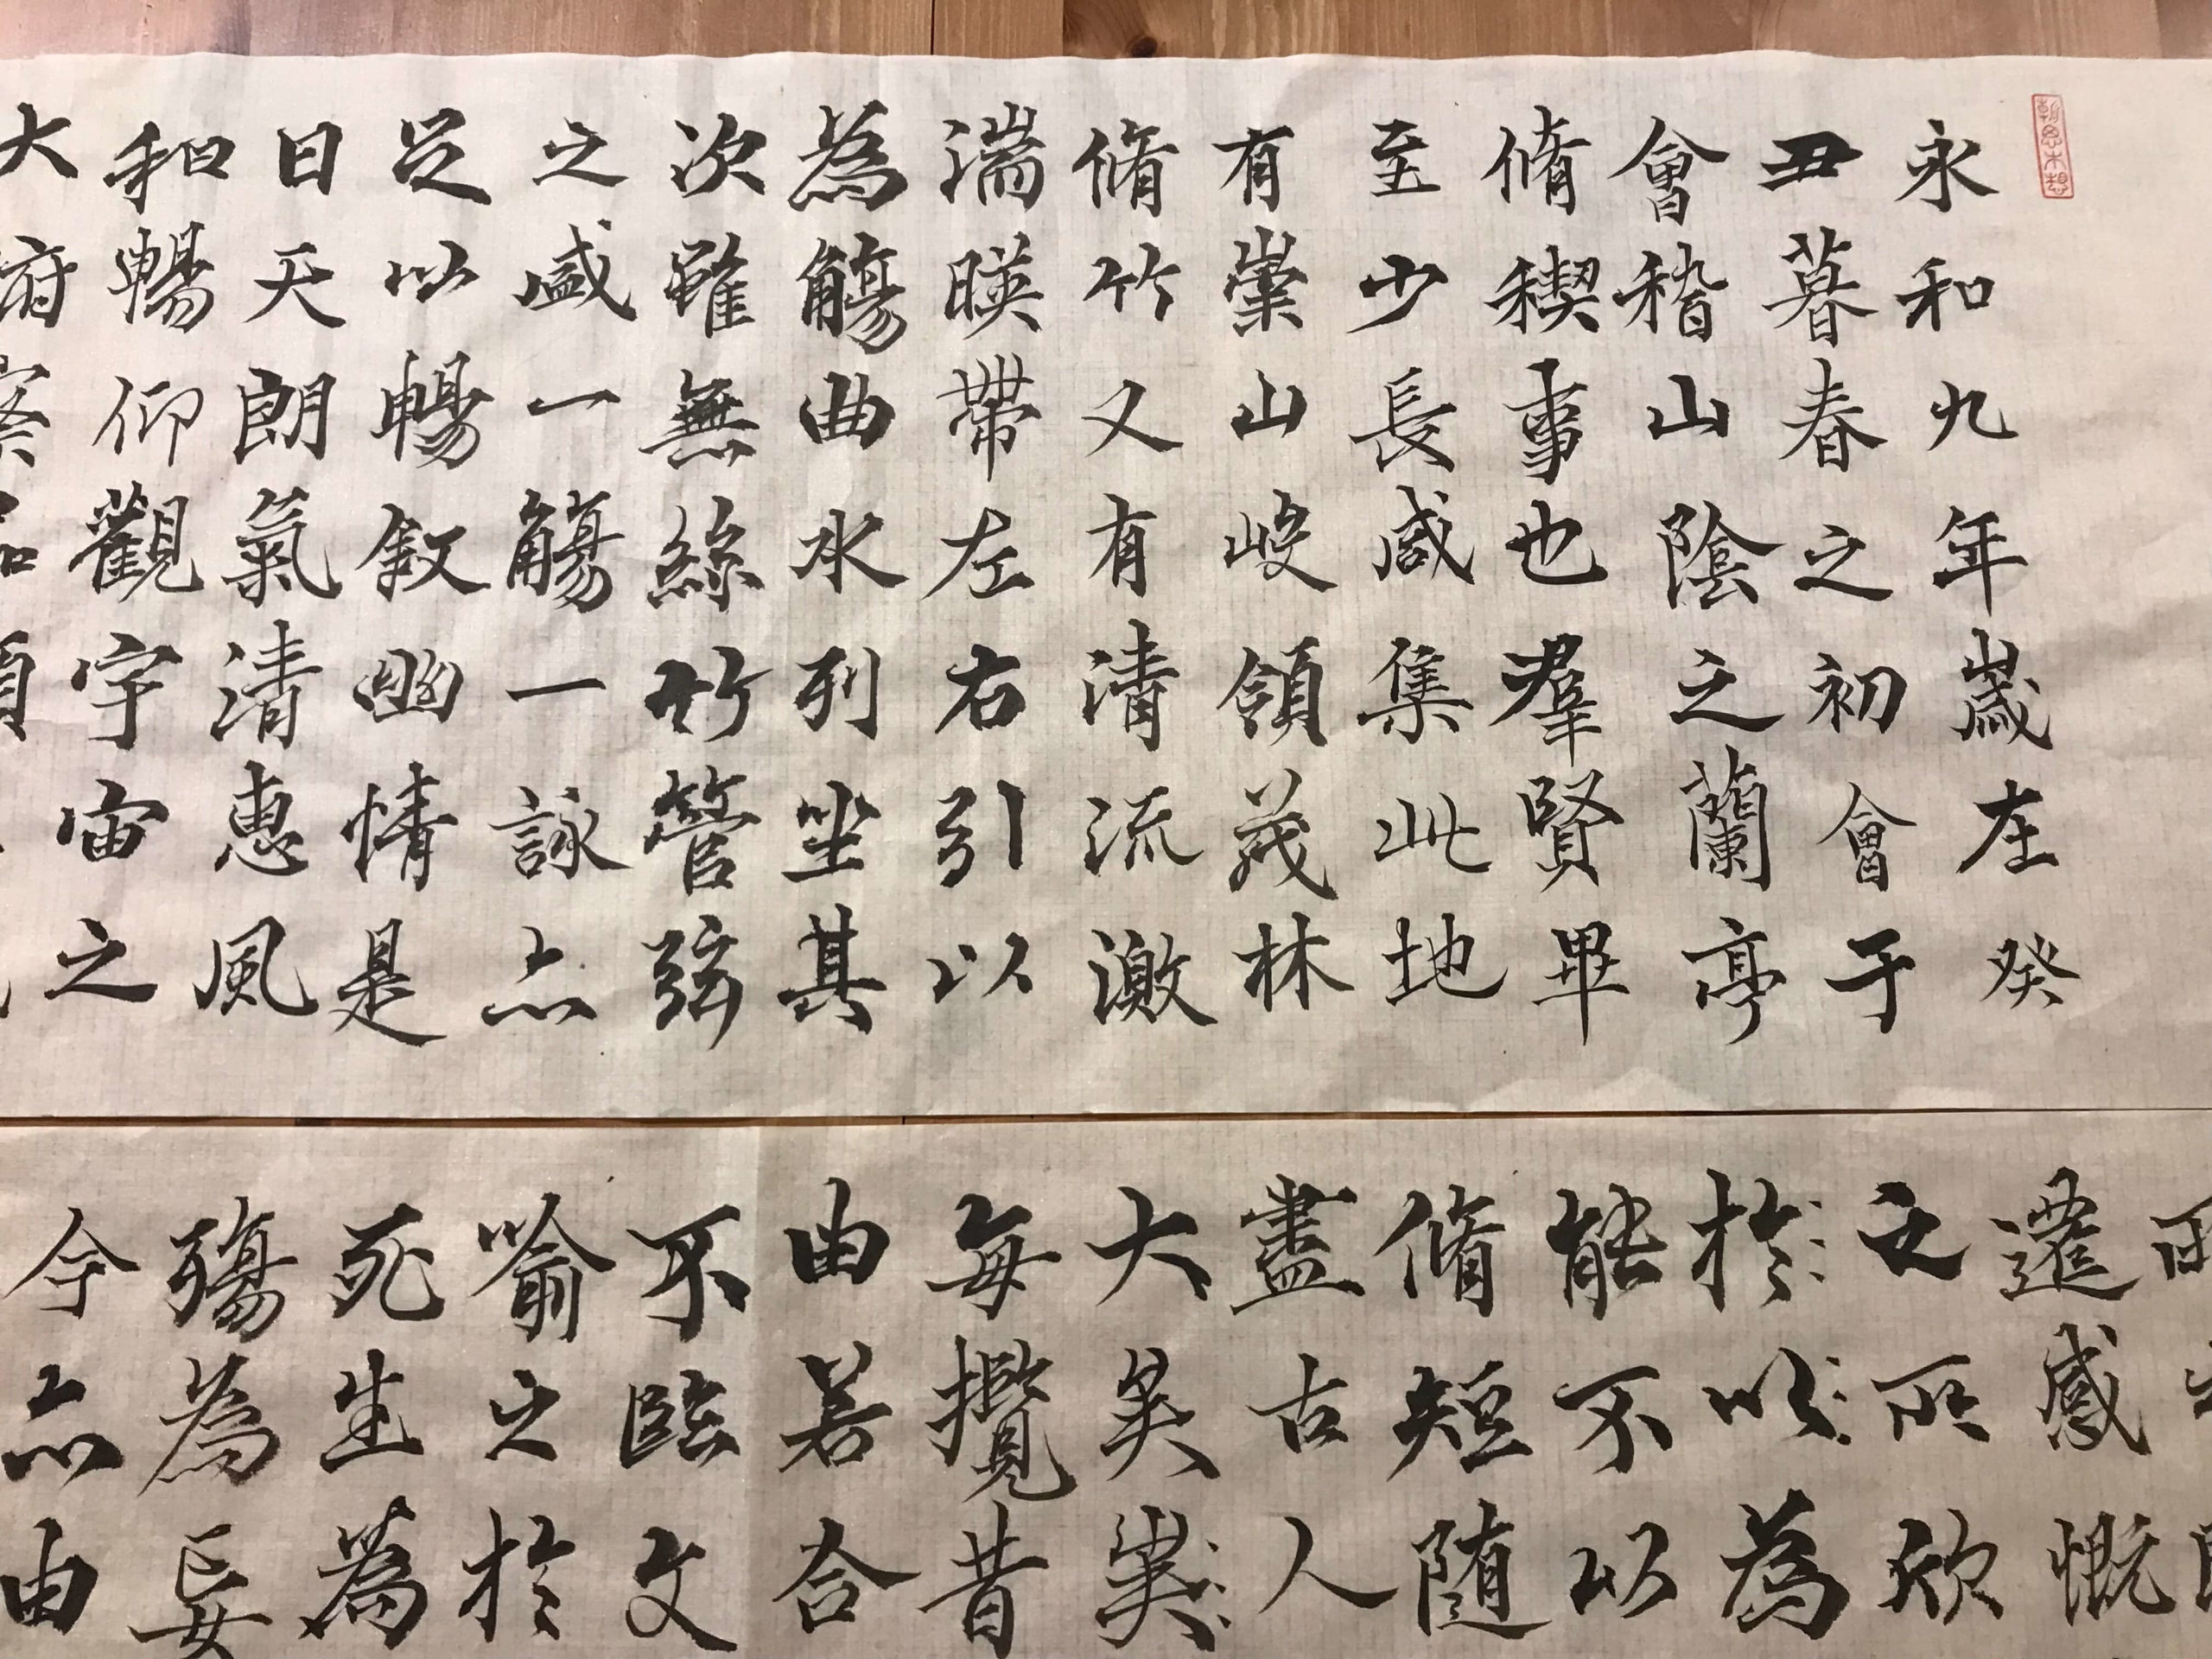 永和九年歲在癸
丑暮春之初會于
會稽山陰之蘭亭
脩稧事也羣賢畢
至少長咸集此地
有崇山峻領茂林
脩竹又有清流激
湍暎帶左右引以
為觴曲水列坐其
次雖無絲竹管弦
之盛一觴一詠亦
足以暢叙幽情是
日天朗氣清惠風
和暢仰觀宇宙之
大府察品
遷感慨
之所欣
於以為
能不以
脩短随
盡古人
大矣
每攬昔
由若合
不臨文
喻之於
死生為
殤為妄
今亦由